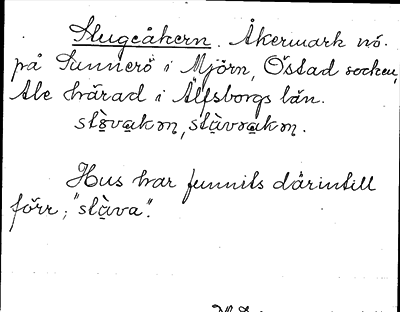 Slugeåkern. Åkermark nö.
på Sunnerö i Mjörn, Östad socken,
Ale härad i Älfsborgs län.
Hus har funnits därintill
förr; "slàva".